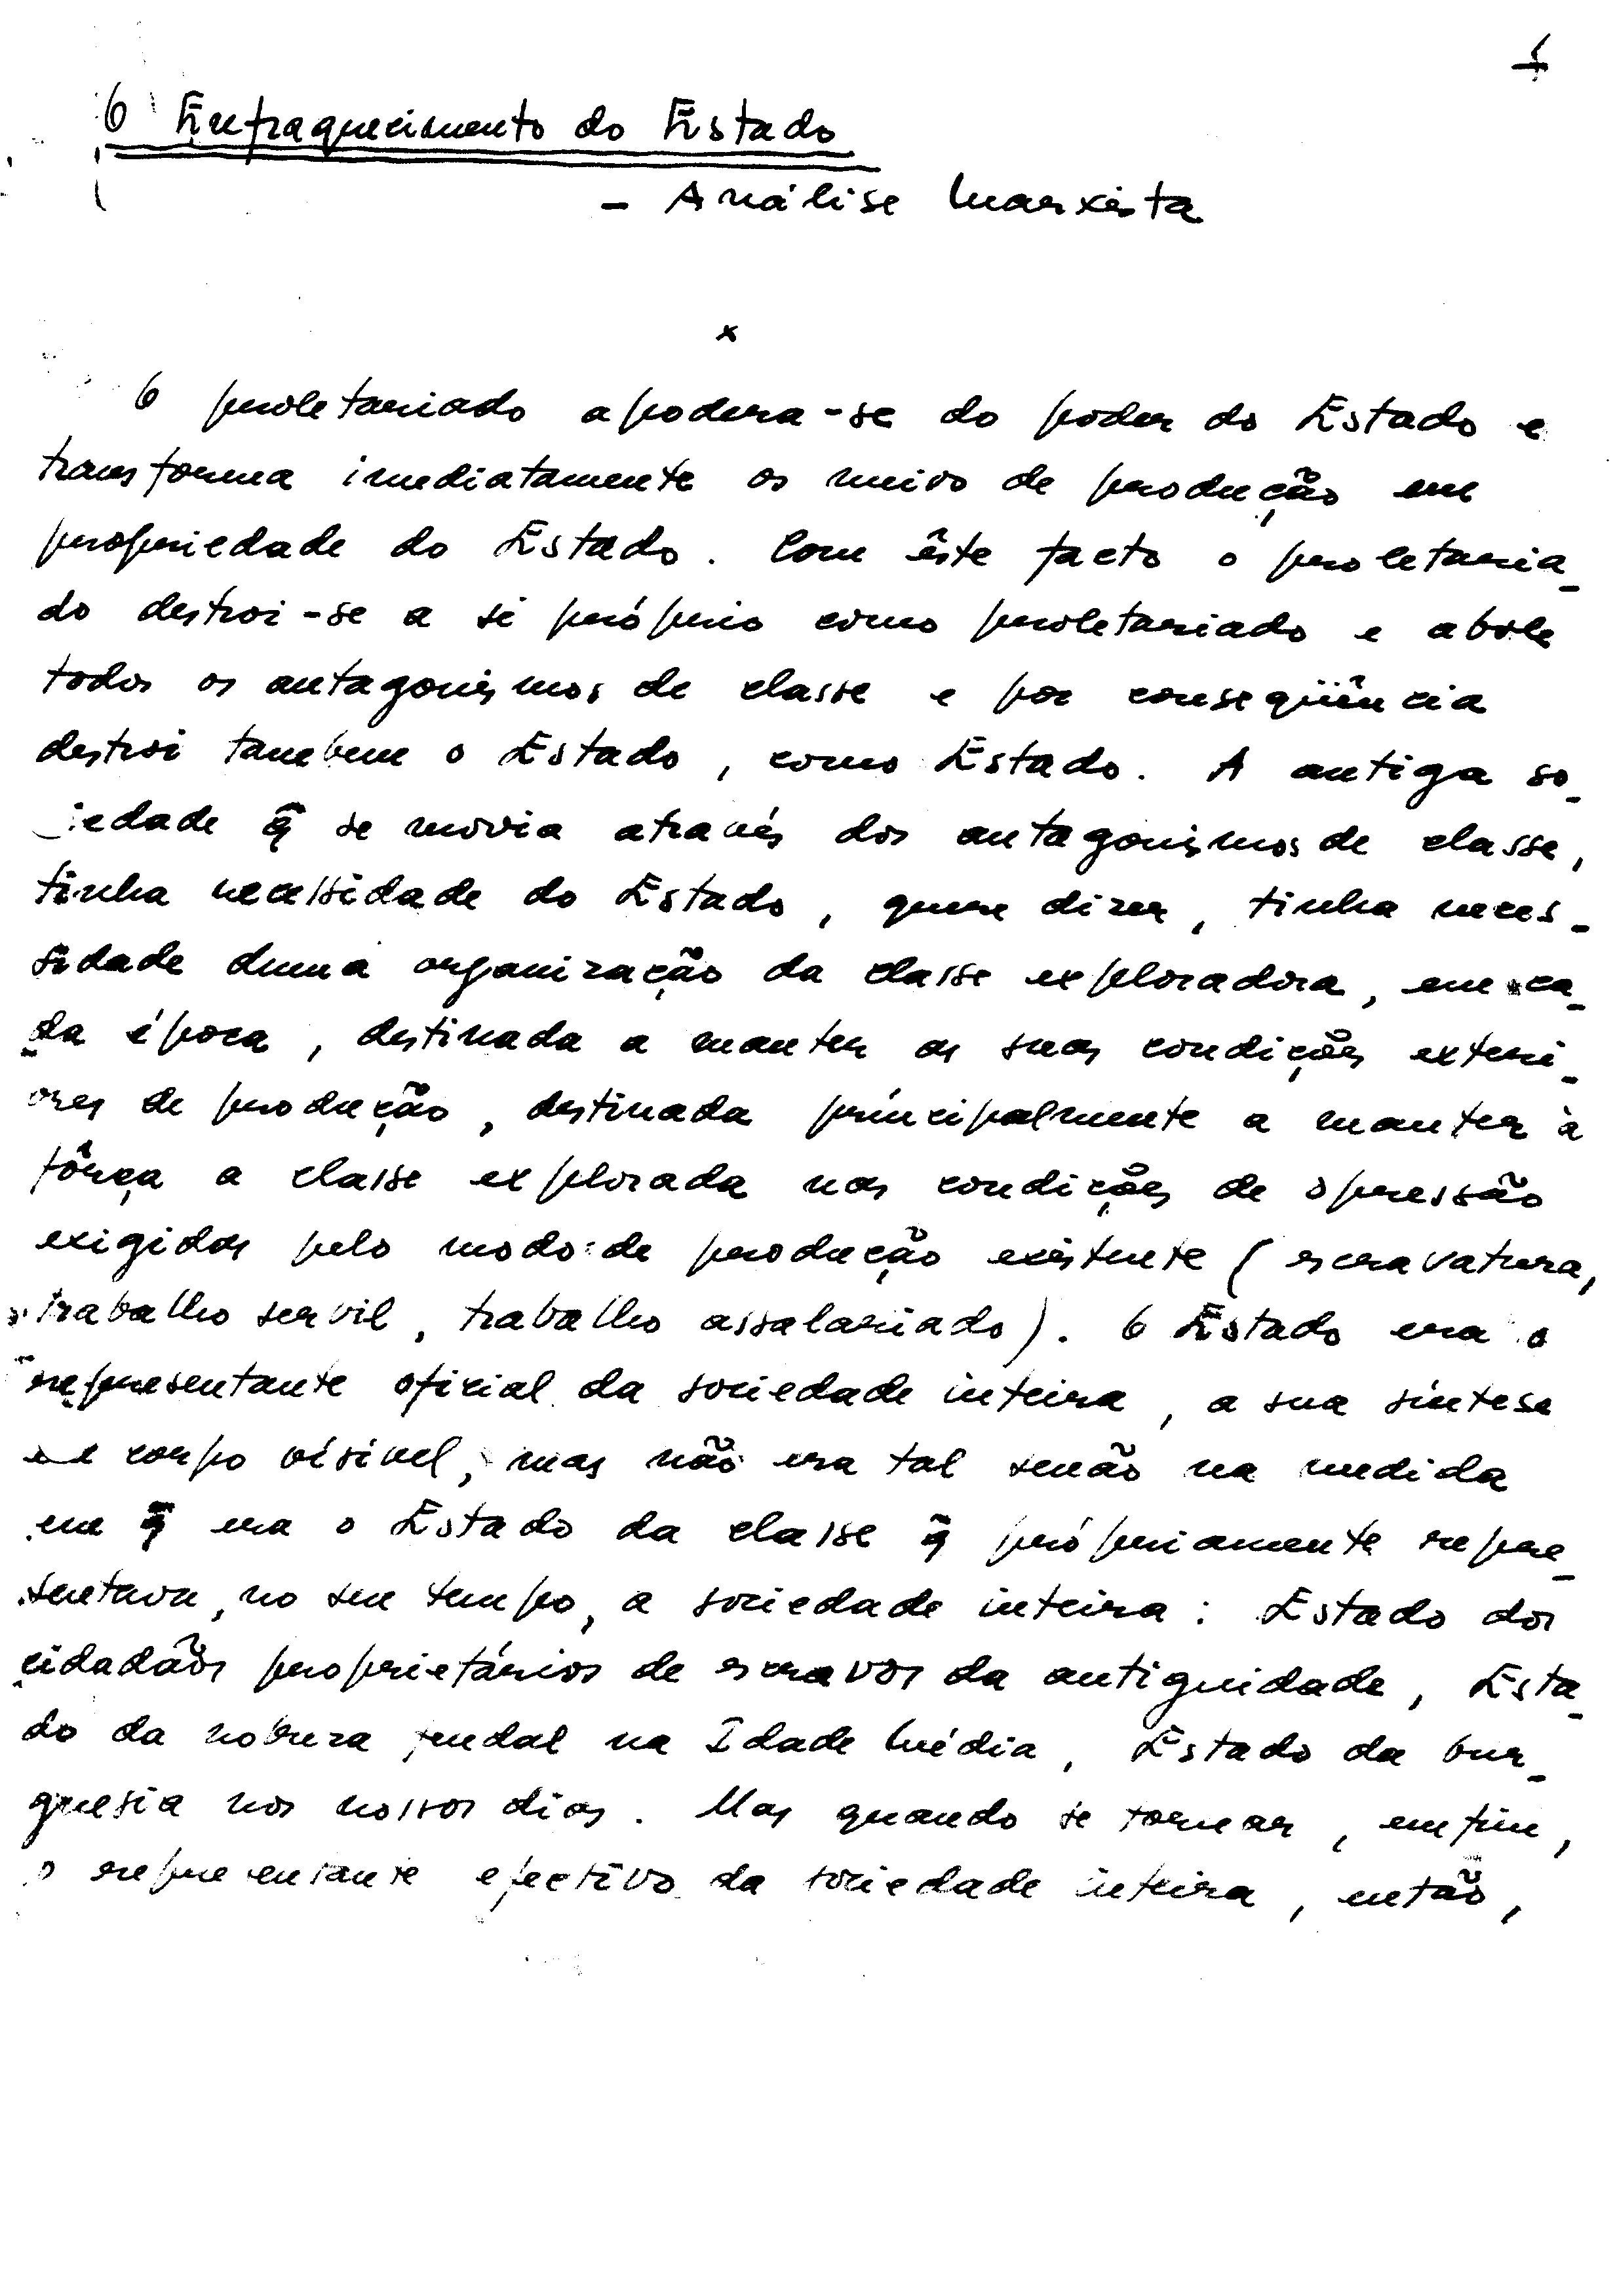 1
O Enfraquecimento do Estado
- Análise Marxista
x
O proletariado apodera-se do poder do Estado e
transforma imediatamente os meios de produção em
propriedade do Estado. Com êste facto o proletaria-
do destroi-se a si próprio como proletariado e abole
todos os antagonismos de classe e por conseqüência
destroi tambem o Estado, como Estado. A antiga so-
ciedade q̃ se movia através dos antagonismos de classe,
tinha necessidade do Estado, quere dizer, tinha neces-
sidade duma organização da classe exploradora, em ca-
da época, destinada a manter as suas condições exteri-
ores de produção, destinada principalmente a manter à
fôrça a classe explorada nas condições de opressão
exigidas pelo modo de produção existente (escravatura,
trabalho servil, trabalho assalariado). O Estado era o
representante oficial da sociedade inteira, a sua síntese
corpo visivel, mas não era tal senão na medida
em q̃ era o Estado da classe q̃ própriamente repre-
sentava, no seu tempo, a sociedade inteira: Estado dos
cidadãos proprietários de escravos da antiguidade, Esta-
do da nobreza feudal na Idade Média, Estado da bur-
guesia nos nossos dias. Mas quando se tornar, emfim,
o representante efectivo da sociedade inteira, então,